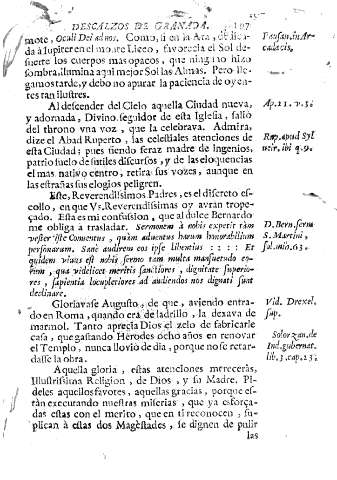 DESCALZOS DE GRANADA.
mote, Oculi Dei ad nos. Como, si en la Ara, dedicada
a Jupiter en el monte Liceo, favorecia el Sol de
suerte los cuerpos mas opacos, que ningno hizo
sombra, ilumina aqui mejor Sol las Almas. Pero llegamos
tarde, y debo no apurar la paciencia de oyentes
tan ilustres.
Pausan. in Arcadacis,
Al descender del Cielo aquella Ciudad nueva,
y adornada, Divino seguidor de esta Iglesia, salió
del throno vna voz, que la celebrava. Admira,
dize el Abad Ruperto, las celestiales atenciones de
esta Ciudad; pues siendo feraz madre de ingenios,
patrio suelo de sutiles discursos, y de las eloquencias
el mas nativo centro, retira sus vozes, aunque en
las estrañas sus elogios peligren.
Ap. 21. v. 3.
Rup. apud Sylveir. ibi q. 9.
Este, Reverendissimos Padres, es el discreto escollo,
en que Vs. Reverendissimas oy avran tropeçado.
Esta es mi confussion, que al dulce Bernardo
me obliga a trasladar. Sermonem à nobis expetit tàm
vester iste Conventus, quàm adventus harum honorabilium
personarum. Sanè audirem eos ipse libentius : : : : Et
quidem vivus est nobis sermo tam multa mansuetudo eorum,
qua videlicet meritis sanctiores, dignitate superiores,
sapientia locupletiores ad audiendos nos dignati sunt
declinare.
D. Bern. serm
S. Martini,
fol. mio. 63.
Gloriavase Augusto, de que, aviendo entrado
en Roma, quando era de ladrillo, la dexava de
marmol. Tanto aprecia Dios el zelo de fabricarle
casa, que gastando Herodes ocho años en renovar
el Templo, nunca llovio de dia, porque no se retardasse
la obra.
Vid. Drexel.
sup.
Solorzan. de
Ind. gubernat.
lib. 3. cap. 23.
Aquella gloria, estas atenciones merecerás,
Illustrissima Religion, de Dios, y su Madre. Pideles
aquellos favores, aquellas gracias, porque están
executando nuestras miserias, que ya esforçadas
estas con el merito, que en ti reconocen, suplican
à estas dos Magestades, se dignen de pulir
las